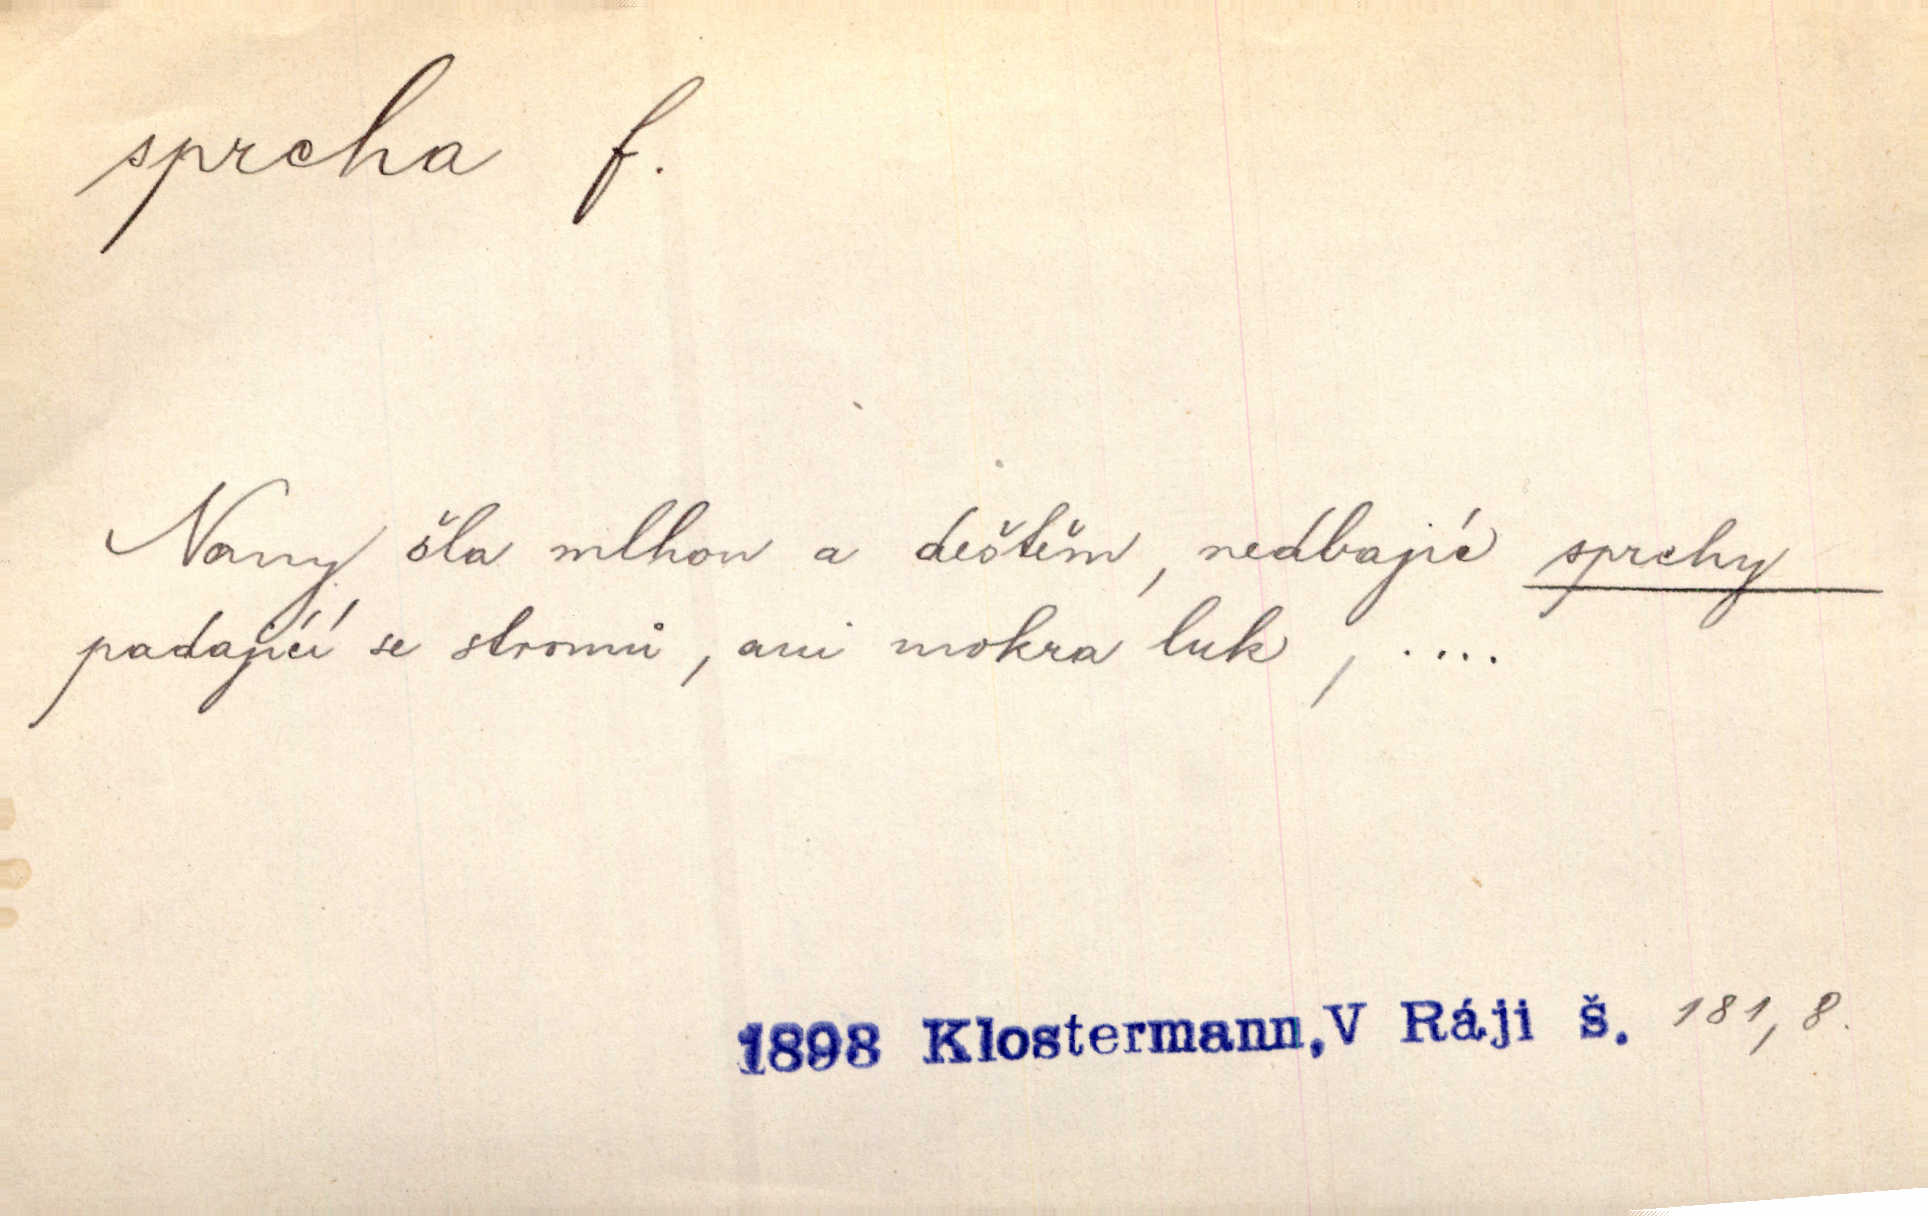 sprcha f.
Nany šla mlhou a deštěm, nedbajíc sprchy
padající se stromů, ani mokra luk, ....
1898 Klostermann,V Ráji š. 181, 8.